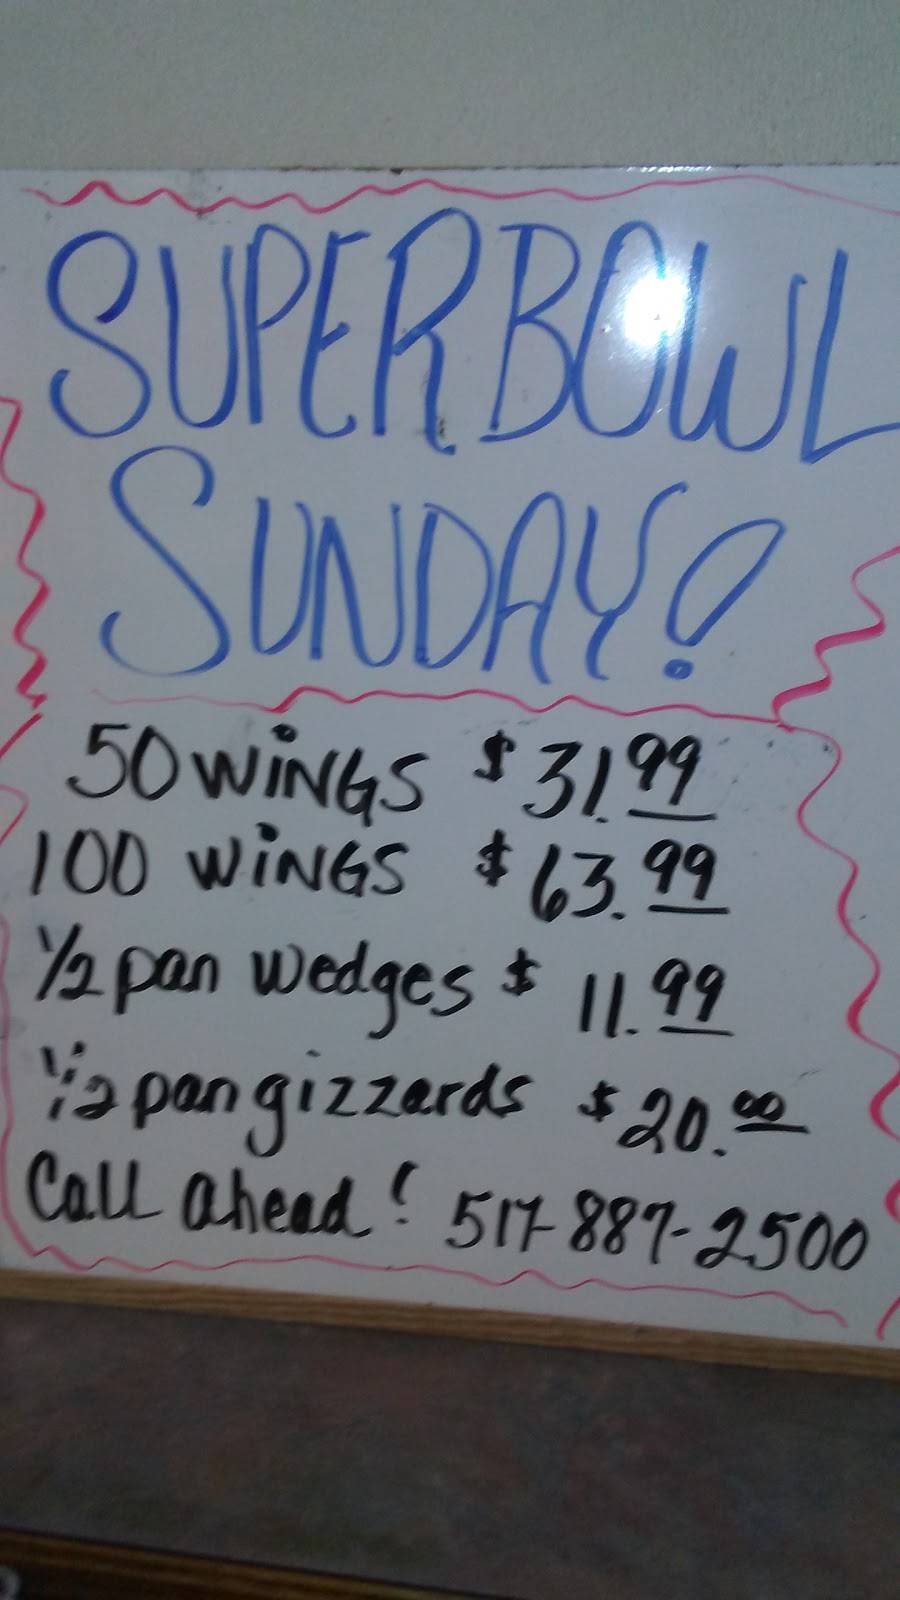 SUPERBOWL
SUNDAY!
50 WiNGS $31.99
100 WiNGS $63.99
1/2 pan wedges $11.99
1/2 pan gizzards $20.00
Call ahead! 517-887-2500